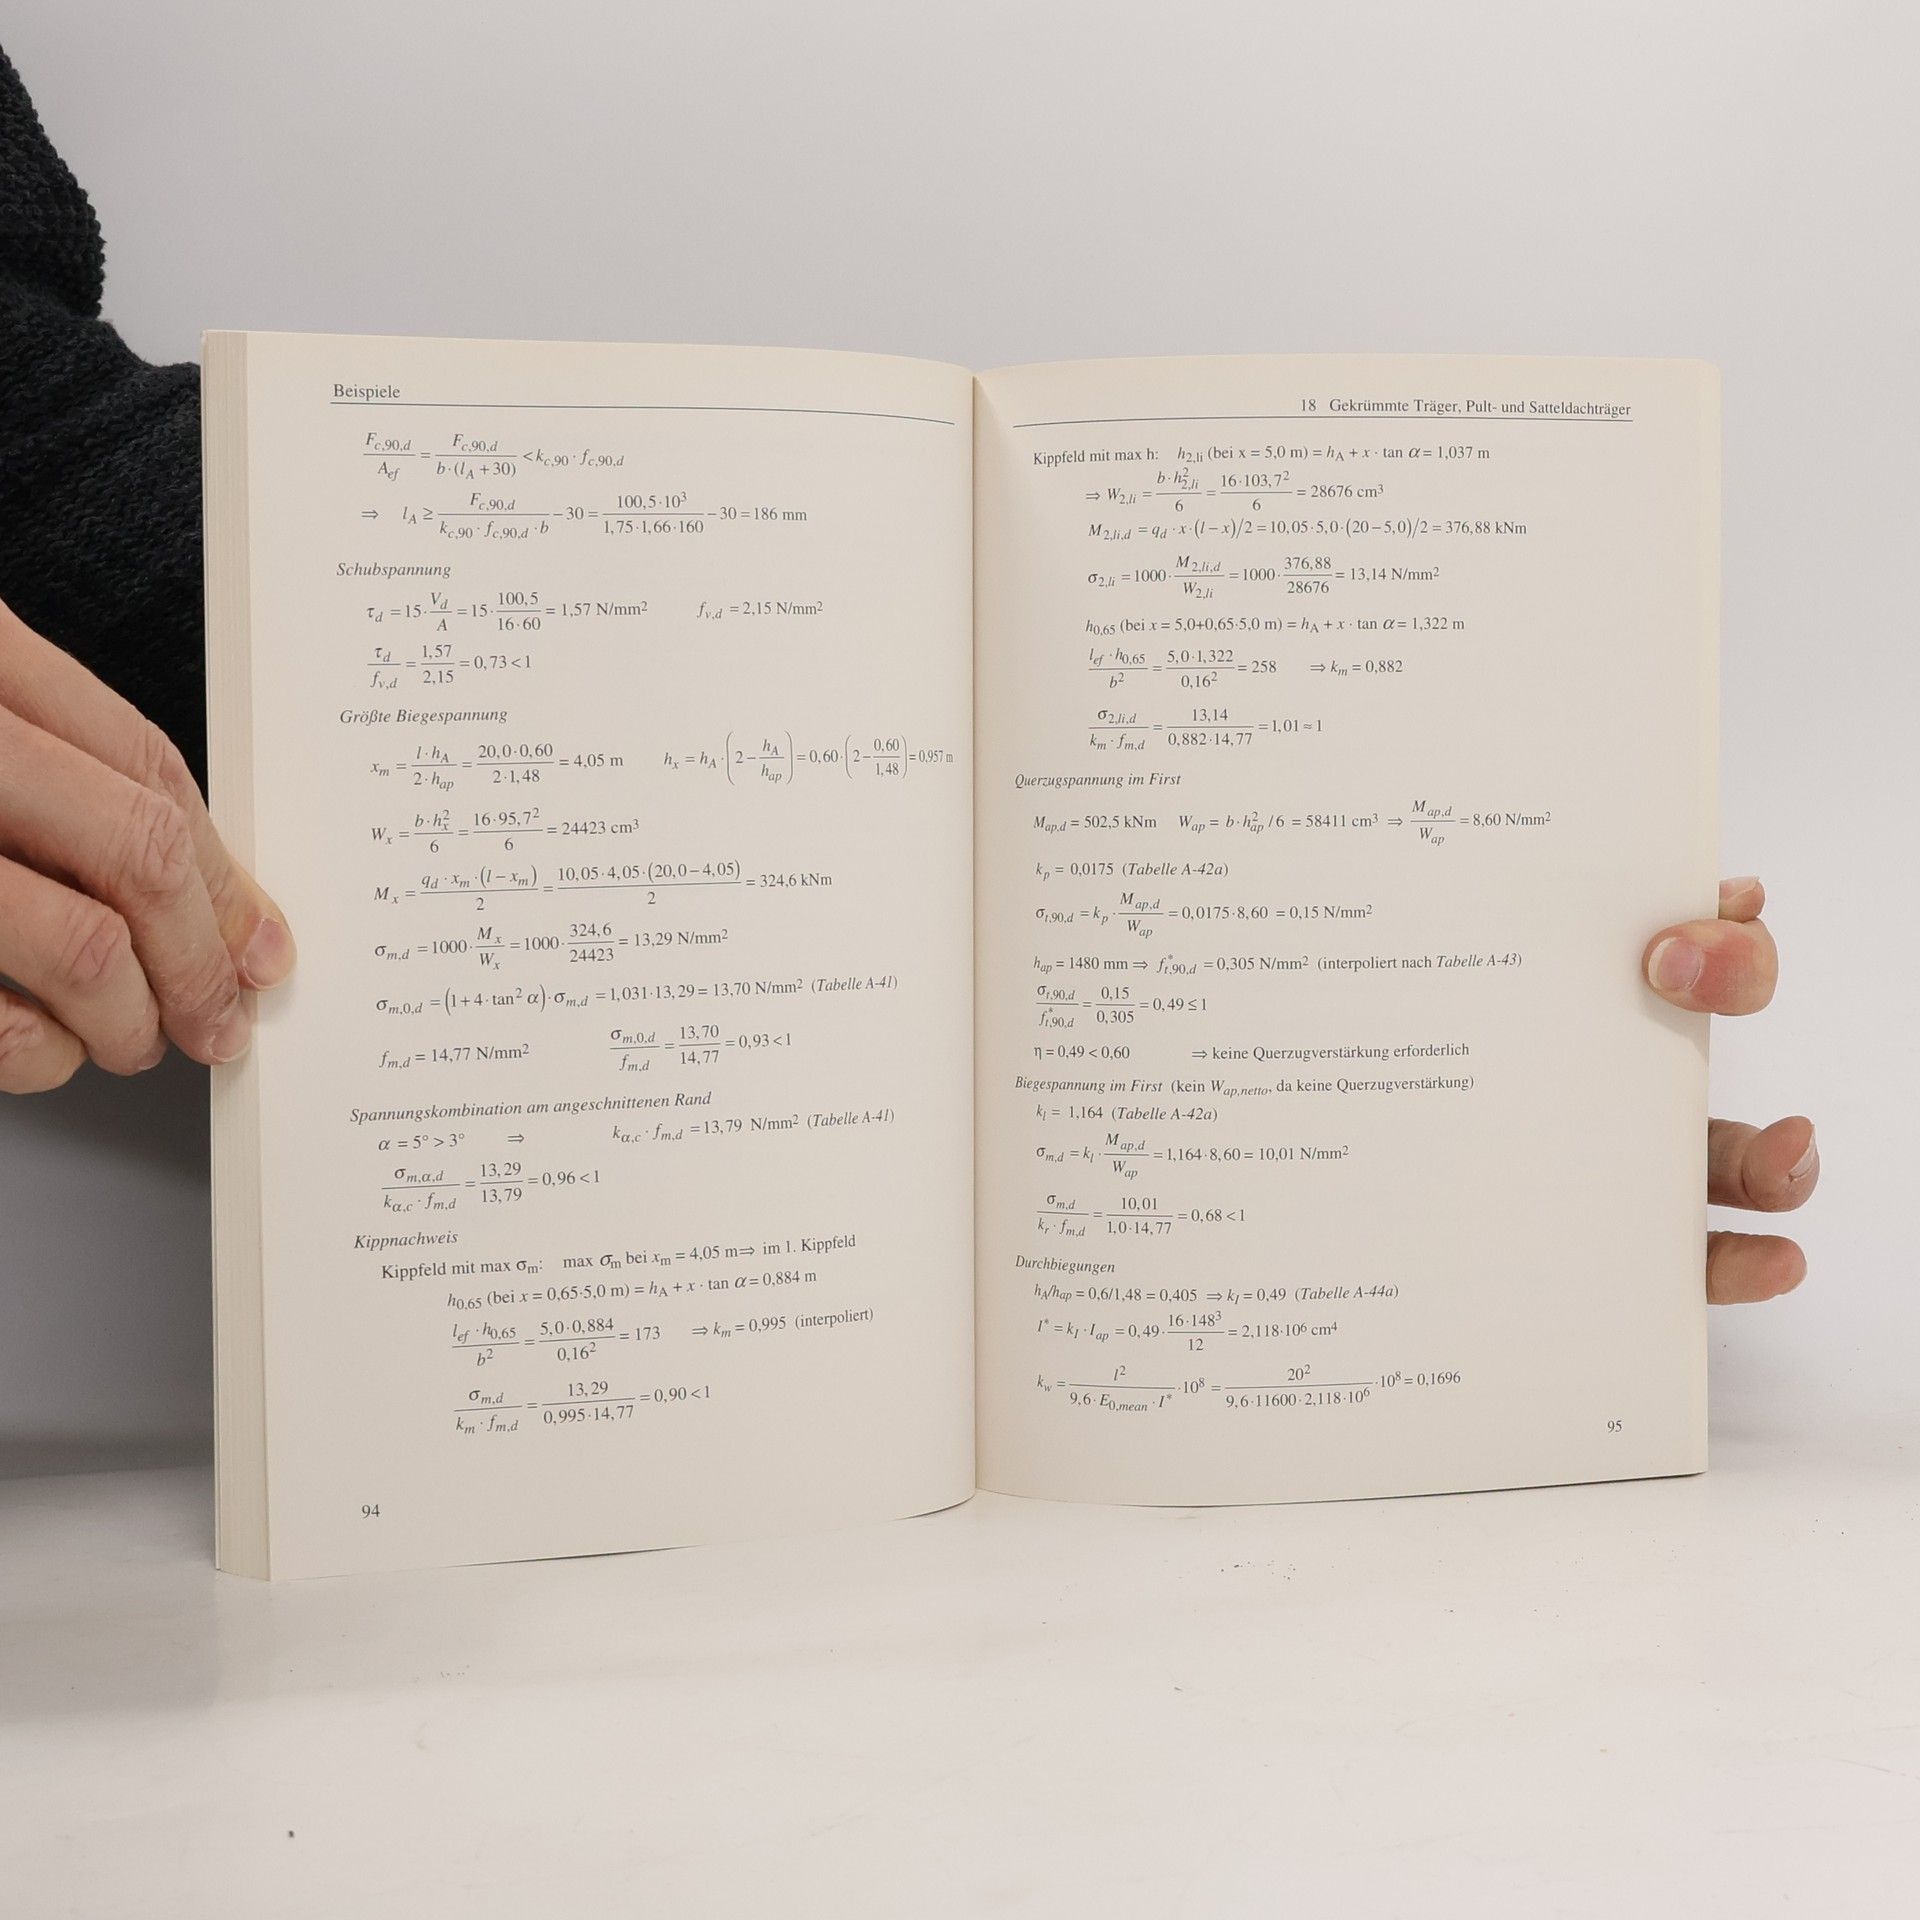 Beispiele
F_c,90,d / A_ef = F_c,90,d / (b·(l_A + 30)) < k_c,90 · f_c,90,d
⇒ l_A ≥ F_c,90,d / (k_c,90 · f_c,90,d · b) − 30 = 100,5·10³ / (1,75·1,66·160) − 30 = 186 mm
Schubspannung
τ_d = 15· V_d / A = 15· 100,5 / (16·60) = 1,57 N/mm² f_v,d = 2,15 N/mm²
τ_d / f_v,d = 1,57 / 2,15 = 0,73 < 1
Größte Biegespannung
x_m = l·h_A / (2·h_ap) = 20,0·0,60 / (2·1,48) = 4,05 m h_x = h_A · (2 − h_A / h_ap) = 0,60·(2 − 0,60 / 1,48) = 0,957 m
W_x = b·h_x² / 6 = 16·95,7² / 6 = 24423 cm³
M_x = q_d · x_m · (l − x_m) / 2 = 10,05·4,05·(20,0 − 4,05) / 2 = 324,6 kNm
σ_m,d = 1000· M_x / W_x = 1000· 324,6 / 24423 = 13,29 N/mm²
σ_m,0,d = (1 + 4·tan² α)·σ_m,d = 1,031·13,29 = 13,70 N/mm² (Tabelle A-41)
f_m,d = 14,77 N/mm² σ_m,0,d / f_m,d = 13,70 / 14,77 = 0,93 < 1
Spannungskombination am angeschnittenen Rand
α = 5° > 3° ⇒ k_α,c · f_m,d = 13,79 N/mm² (Tabelle A-41)
σ_m,α,d / (k_α,c · f_m,d) = 13,29 / 13,79 = 0,96 < 1
Kippnachweis
Kippfeld mit max σ_m: max σ_m bei x_m = 4,05 m ⇒ im 1. Kippfeld
h_0,65 (bei x = 0,65·5,0 m) = h_A + x · tan α = 0,884 m
l_ef · h_0,65 / b² = 5,0·0,884 / 0,16² = 173 ⇒ k_m = 0,995 (interpoliert)
σ_m,d / (k_m · f_m,d) = 13,29 / (0,995·14,77) = 0,90 < 1
94
18 Gekrümmte Träger, Pult- und Satteldachträger
Kippfeld mit max h: h_2,li (bei x = 5,0 m) = h_A + x · tan α = 1,037 m
⇒ W_2,li = b·h_2,li² / 6 = 16·103,7² / 6 = 28676 cm³
M_2,li,d = q_d · x · (l − x)/2 = 10,05·5,0·(20 − 5,0)/2 = 376,88 kNm
σ_2,li = 1000· M_2,li,d / W_2,li = 1000· 376,88 / 28676 = 13,14 N/mm²
h_0,65 (bei x = 5,0+0,65·5,0 m) = h_A + x · tan α = 1,322 m
l_ef · h_0,65 / b² = 5,0·1,322 / 0,16² = 258 ⇒ k_m = 0,882
σ_2,li,d / (k_m · f_m,d) = 13,14 / (0,882·14,77) = 1,01 ≈ 1
Querzugspannung im First
M_ap,d = 502,5 kNm W_ap = b·h_ap² / 6 = 58411 cm³ ⇒ M_ap,d / W_ap = 8,60 N/mm²
k_p = 0,0175 (Tabelle A-42a)
σ_t,90,d = k_p · M_ap,d / W_ap = 0,0175·8,60 = 0,15 N/mm²
h_ap = 1480 mm ⇒ f*_t,90,d = 0,305 N/mm² (interpoliert nach Tabelle A-43)
σ_t,90,d / f*_t,90,d = 0,15 / 0,305 = 0,49 ≤ 1
η = 0,49 < 0,60 ⇒ keine Querzugverstärkung erforderlich
Biegespannung im First (kein W_ap,netto, da keine Querzugverstärkung)
k_l = 1,164 (Tabelle A-42a)
σ_m,d = k_l · M_ap,d / W_ap = 1,164·8,60 = 10,01 N/mm²
σ_m,d / (k_r · f_m,d) = 10,01 / (1,0·14,77) = 0,68 < 1
Durchbiegungen
h_A/h_ap = 0,6/1,48 = 0,405 ⇒ k_I = 0,49 (Tabelle A-44a)
I* = k_I · I_ap = 0,49· 16·148³ / 12 = 2,118·10⁶ cm⁴
k_w = l² / (9,6·E_0,mean · I*) ·10⁸ = 20² / (9,6·11600·2,118·10⁶) ·10⁸ = 0,1696
95